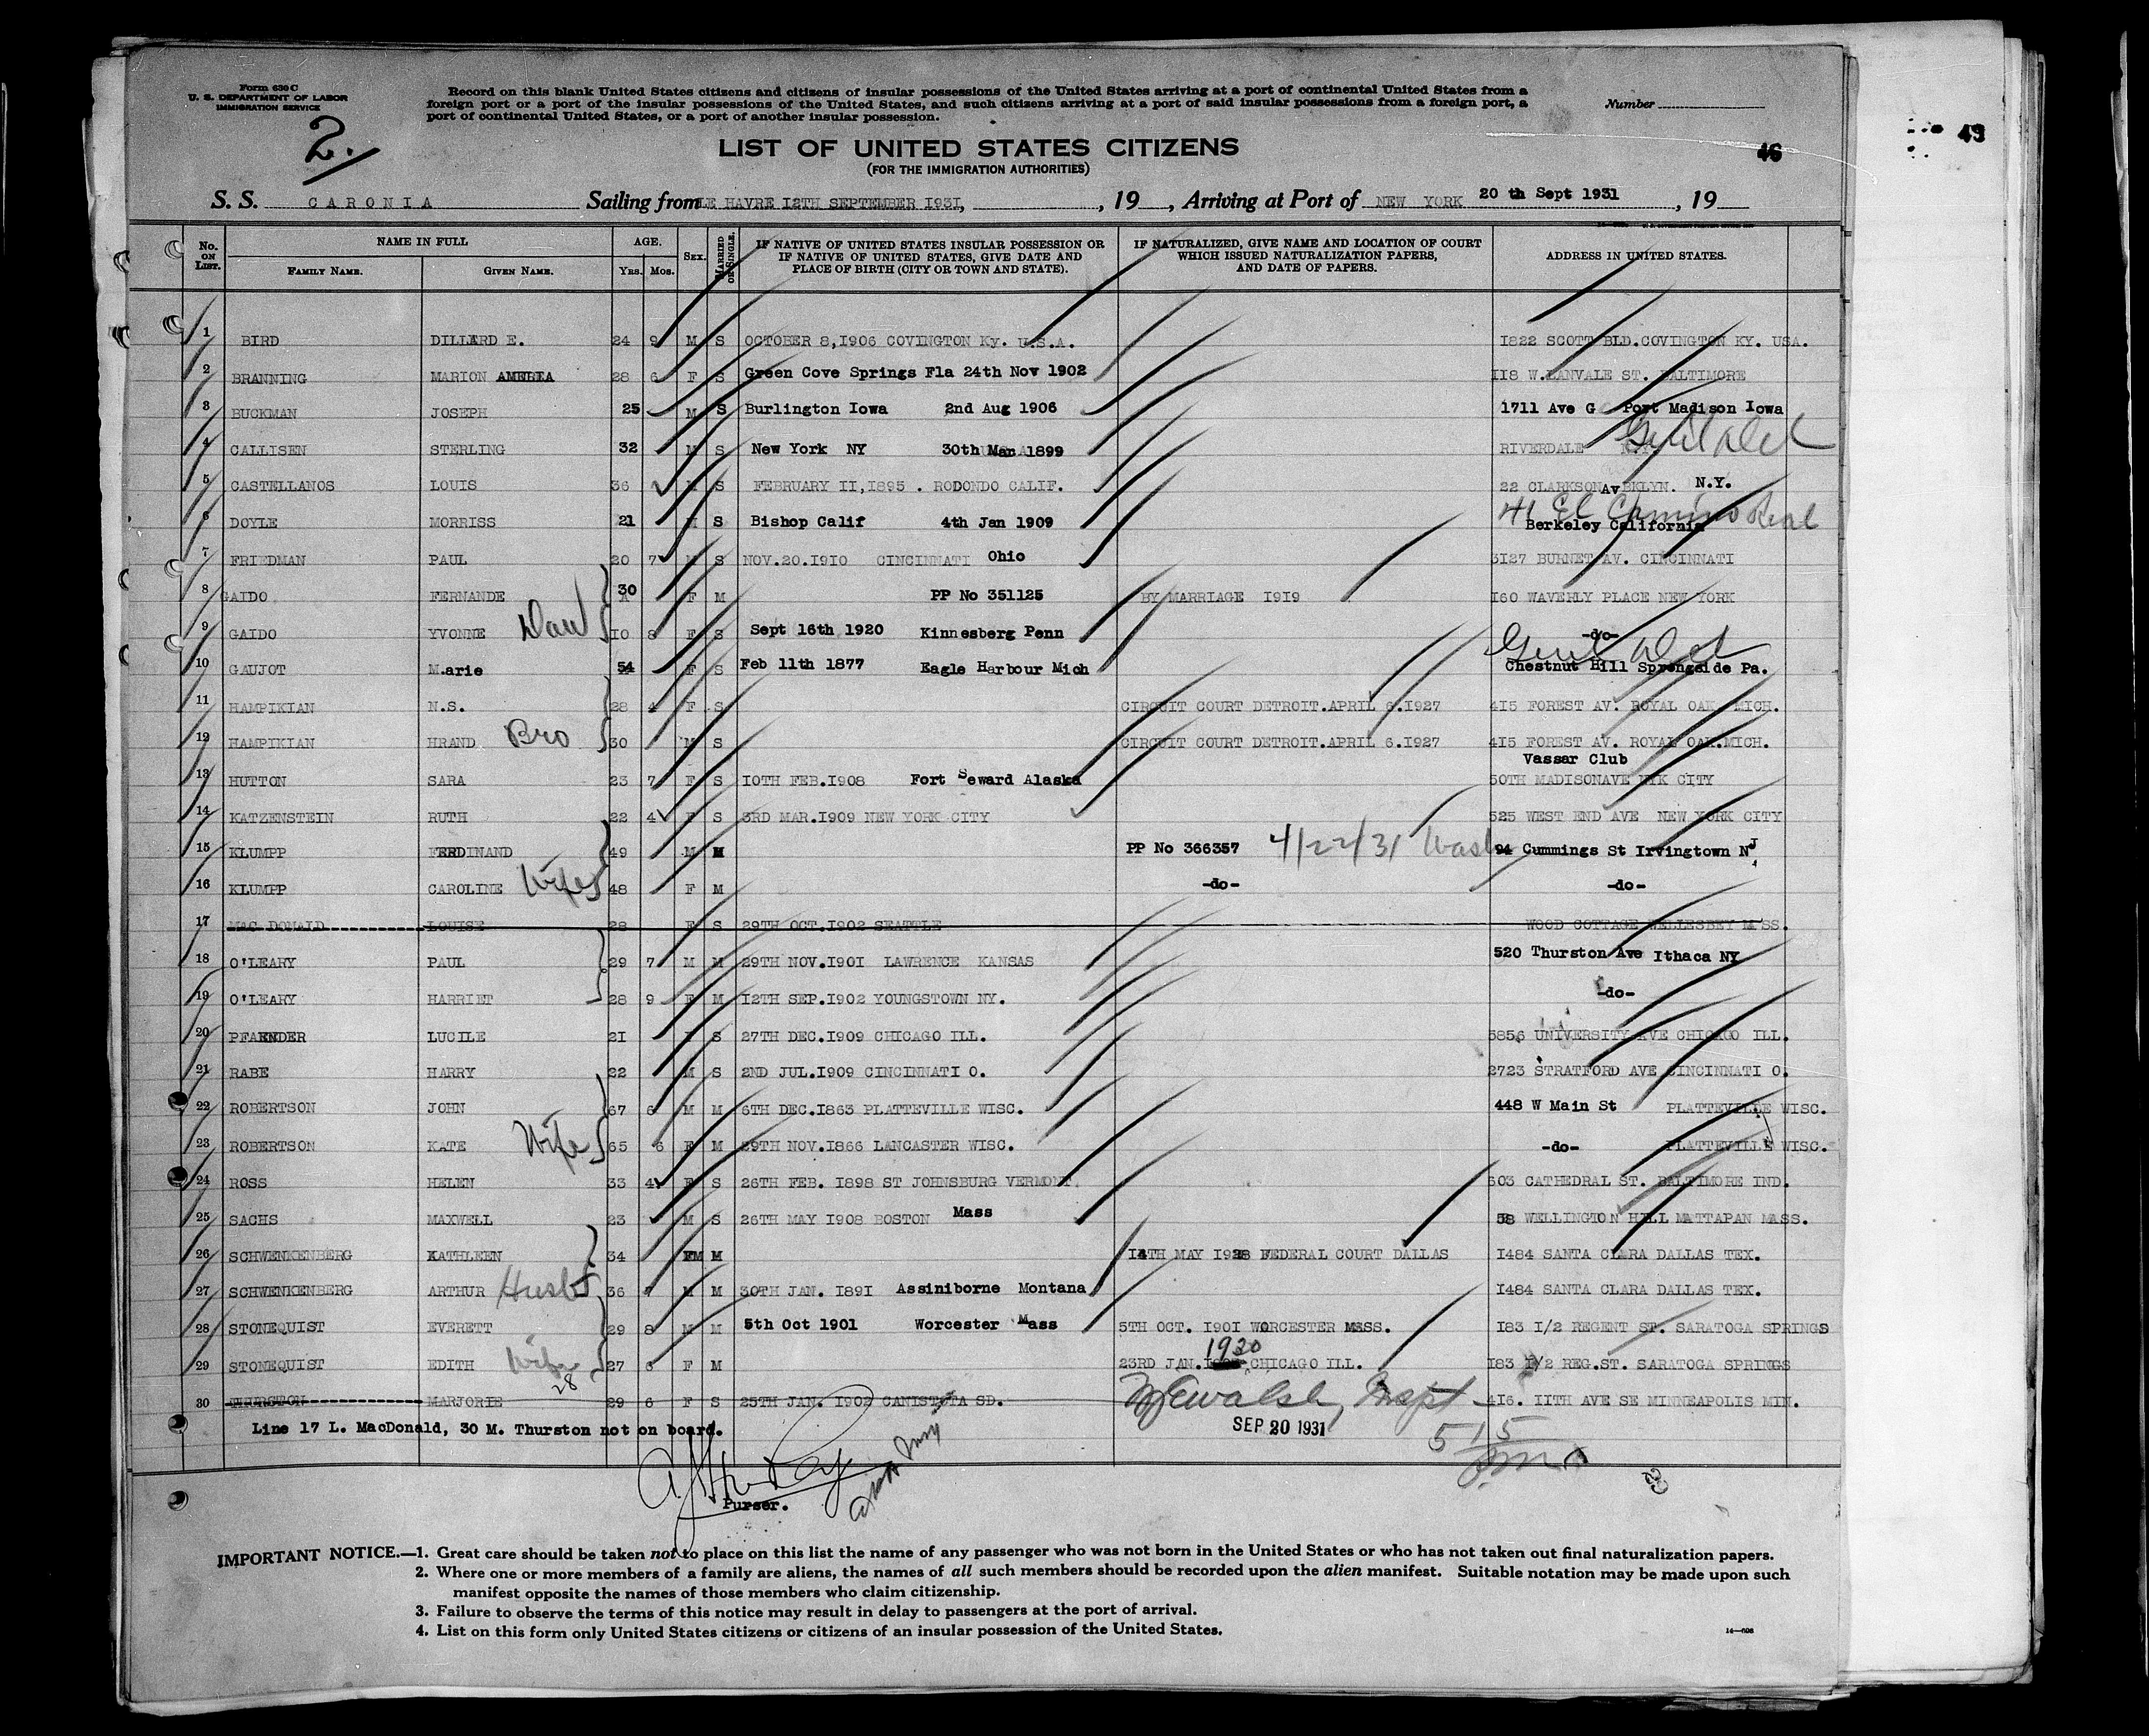 Form 630 C
U. S. DEPARTMENT OF LABOR
IMMIGRATION SERVICE
2.
Record on this blank United States citizens and citizens of insular possessions of the United States arriving at a port of continental United States from a
foreign port or a port of the insular possessions of the United States, and such citizens arriving at a port of said insular possessions from a foreign port, a
port of continental United States, or a port of another insular possession.
Number
LIST OF UNITED STATES CITIZENS
(FOR THE IMMIGRATION AUTHORITIES)
46
43
S. S. CARONIA Sailing from LE HAVRE 12TH SEPTEMBER 1931, , 19 , Arriving at Port of NEW YORK 20 th Sept 1931 , 19
No. ON LIST. NAME IN FULL FAMILY NAME. GIVEN NAME. AGE. Yrs. Mos. SEX. MARRIED OR SINGLE. IF NATIVE OF UNITED STATES INSULAR POSSESSION OR IF NATIVE OF UNITED STATES, GIVE DATE AND PLACE OF BIRTH (CITY OR TOWN AND STATE). IF NATURALIZED, GIVE NAME AND LOCATION OF COURT WHICH ISSUED NATURALIZATION PAPERS, AND DATE OF PAPERS. ADDRESS IN UNITED STATES.
1 BIRD DILLARD E. 24 9 M S OCTOBER 8,1906 COVINGTON Ky. U.S.A. 1822 SCOTT BLD.COVINGTON KY. USA.
2 BRANNING MARION AMELIA 28 6 F S Green Cove Springs Fla 24th Nov 1902 118 W.LANVALE ST. BALTIMORE
3 BUCKMAN JOSEPH 25 M S Burlington Iowa 2nd Aug 1906 1711 Ave G Port Madison Iowa
4 CALLISEN STERLING 32 M S New York NY 30th Mar 1899 RIVERDALE
5 CASTELLANOS LOUIS 36 M S FEBRUARY II,1895 . RODONDO CALIF. 22 CLARKSON Av BKLYN. N.Y.
6 DOYLE MORRISS 21 M S Bishop Calif 4th Jan 1909 41 El Camino Real Berkeley California
7 FRIEDMAN PAUL 20 7 M S NOV.20.1910 CINCINNATI Ohio 3127 BURNET AV. CINCINNATI
8 GAIDO FERNANDE 30 F M PP No 351125 BY MARRIAGE 1919 160 WAVERLY PLACE NEW YORK
9 GAIDO YVONNE Dau 10 8 F S Sept 16th 1920 Kinnesberg Penn -do-
10 GAUJOT Marie 54 F S Feb 11th 1877 Eagle Harbour Mich Chestnut Hill Sprengside Pa.
11 HAMPIKIAN N.S. 28 4 F S CIRCUIT COURT DETROIT.APRIL 6.1927 415 FOREST AV. ROYAL OAK MICH.
12 HAMPIKIAN HRAND Bro 30 M S CIRCUIT COURT DETROIT.APRIL 6.1927 415 FOREST AV. ROYAL OAK.MICH.
13 HUTTON SARA 23 7 F S 10TH FEB.1908 Fort Seward Alaska Vassar Club 50TH MADISONAVE NYK CITY
14 KATZENSTEIN RUTH 22 4 F S 3RD MAR.1909 NEW YORK CITY 525 WEST END AVE NEW YORK CITY
15 KLUMPP FERDINAND 49 M M PP No 366357 4/22/31 Wash 94 Cummings St Irvingtown NJ
16 KLUMPP CAROLINE Wife 48 F M -do- -do-
17 MAC DONALD LOUISE 28 F S 29TH OCT.1902 SEATTLE WOOD COTTAGE WELLESBEY MASS.
18 O'LEARY PAUL 29 7 M M 29TH NOV.1901 LAWRENCE KANSAS 520 Thurston Ave Ithaca NY
19 O'LEARY HARRIET 28 9 F M 12TH SEP.1902 YOUNGSTOWN NY. -do-
20 PFAENDER LUCILE 21 F S 27TH DEC.1909 CHICAGO ILL. 5856 UNIVERSITY AVE CHICAGO ILL.
21 RABE HARRY 22 M S 2ND JUL.1909 CINCINNATI O. 2723 STRATFORD AVE CINCINNATI O.
22 ROBERTSON JOHN 67 6 M M 6TH DEC.1863 PLATTEVILLE WISC. 448 W Main St PLATTEVILLE WISC.
23 ROBERTSON KATE Wife 65 6 F M 29TH NOV.1866 LANCASTER WISC. -do- PLATTEVILLE WISC.
24 ROSS HELEN 33 4 F S 26TH FEB. 1898 ST JOHNSBURG VERMONT 603 CATHEDRAL ST. BALTIMORE IND.
25 SACHS MAXWELL 23 M S 26TH MAY 1908 BOSTON Mass 58 WELLINGTON HILL MATTAPAN MASS.
26 SCHWENKENBERG KATHLEEN 34 F M 14TH MAY 1928 FEDERAL COURT DALLAS 1484 SANTA CLARA DALLAS TEX.
27 SCHWENKENBERG ARTHUR Husb 36 M M 30TH JAN. 1891 Assiniborne Montana 1484 SANTA CLARA DALLAS TEX.
28 STONEQUIST EVERETT 29 8 M M 5th Oct 1901 Worcester Mass 5TH OCT. 1901 WORCESTER MASS. 183 1/2 REGENT ST. SARATOGA SPRINGS
29 STONEQUIST EDITH Wife 27 6 F M 23RD JAN. 1930 CHICAGO ILL. 183 1/2 REG.ST. SARATOGA SPRINGS
30 THURSTON MARJORIE 28 29 6 F S 25TH JAN. 1902 CANISTOTA SD. 416. 11TH AVE SE MINNEAPOLIS MIN.
Line 17 L. MacDonald, 30 M. Thurston not on board.
SEP 20 1931
515
Purser.
IMPORTANT NOTICE.—1. Great care should be taken not to place on this list the name of any passenger who was not born in the United States or who has not taken out final naturalization papers.
2. Where one or more members of a family are aliens, the names of all such members should be recorded upon the alien manifest. Suitable notation may be made upon such
manifest opposite the names of those members who claim citizenship.
3. Failure to observe the terms of this notice may result in delay to passengers at the port of arrival.
4. List on this form only United States citizens or citizens of an insular possession of the United States.